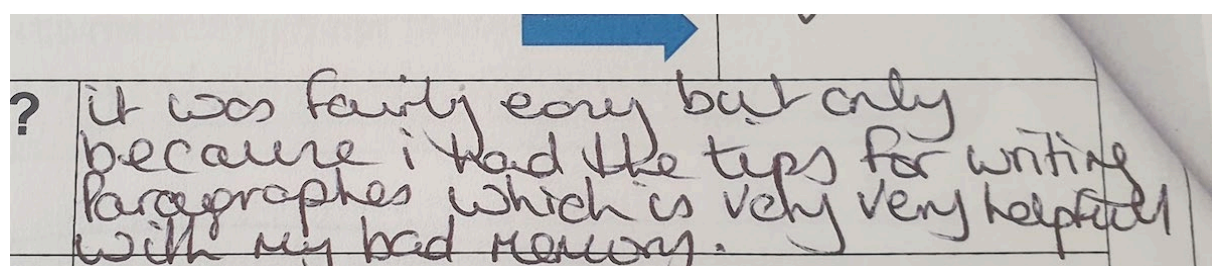 ?
it was fairly easy but only
because i had the tips for writing
Paragraphes which is very very helpful
with my bad memory.